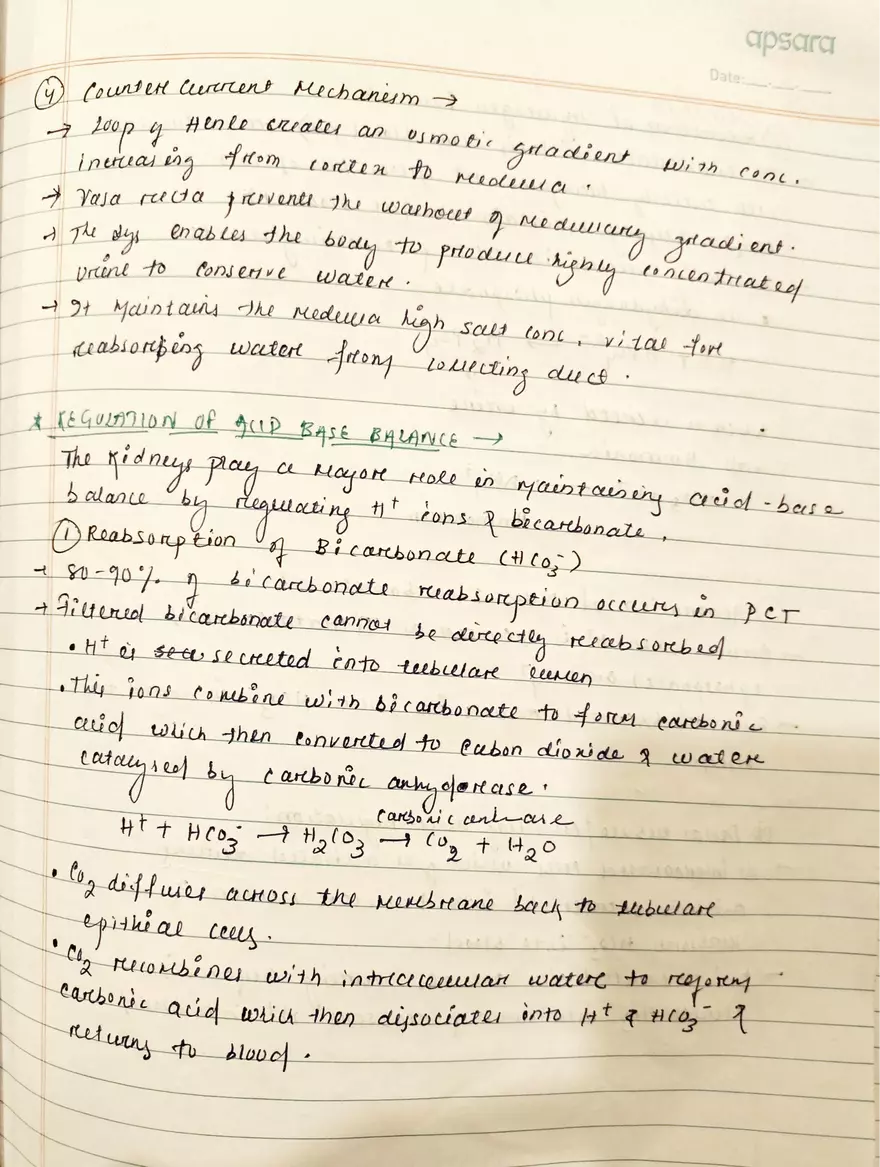 apsara
Date:
④ Counter Current Mechanism →
→ Loop of Henle creates an osmotic gradient with conc.
increasing from cortex to medulla.
→ Vasa recta prevents the washout of medullary gradient.
→ The sys enables the body to produce highly concentrated
urine to conserve water.
→ It maintains the medulla high salt conc, vital for
reabsorbing water from collecting duct.
* REGULATION OF ACID BASE BALANCE →
The kidneys play a major role in maintaining acid-base
balance by regulating H⁺ ions & bicarbonate.
① Reabsorption of Bicarbonate (HCO₃⁻)
→ 80-90% of bicarbonate reabsorption occurs in PCT
→ Filtered bicarbonate cannot be directly reabsorbed
• H⁺ is secreted into tubular lumen
• This ions combine with bicarbonate to form carbonic
acid which then converted to cabon dioxide & water
catalysed by carbonic anhydorease.
carbonic anh-ase
H⁺ + HCO₃⁻ → H₂CO₃ → CO₂ + H₂O
• CO₂ diffuses across the membrane back to tubular
epitheal cells.
• CO₂ recombines with intracecellular water to reform
carbonic acid which then dissociates into H⁺ & HCO₃⁻ &
returns to blood.